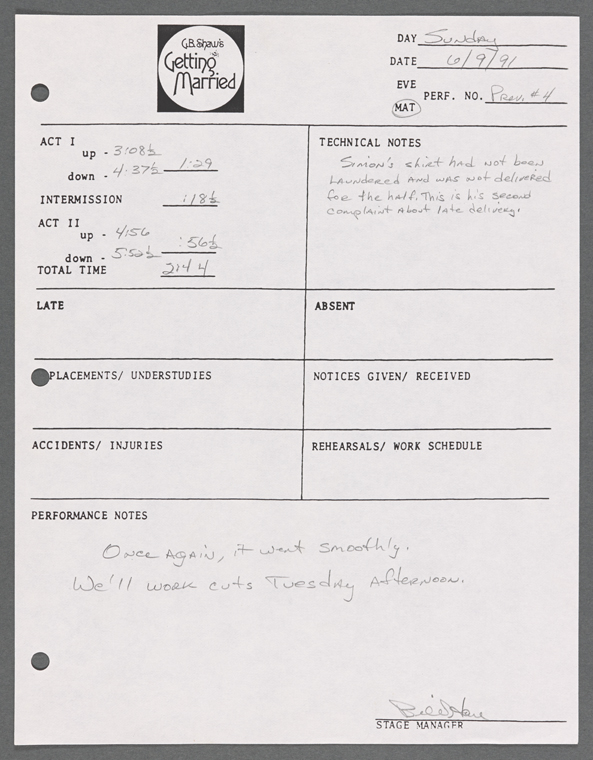 G.B. Shaw's
Getting
Married
DAY Sunday
DATE 6/9/91
EVE
MAT PERF. NO. Prev. #4
ACT I
up - 3:08½
down - 4:37½ 1:29
INTERMISSION :18½
ACT II
up - 4:56
:56½
down - 5:52½
TOTAL TIME 2:44
TECHNICAL NOTES
Simon's shirt had not been
laundered and was not delivered
for the half. This is his second
complaint about late delivery.
LATE
ABSENT
PLACEMENTS/ UNDERSTUDIES
NOTICES GIVEN/ RECEIVED
ACCIDENTS/ INJURIES
REHEARSALS/ WORK SCHEDULE
PERFORMANCE NOTES
Once again, it went smoothly.
We'll work cuts Tuesday afternoon.
STAGE MANAGER